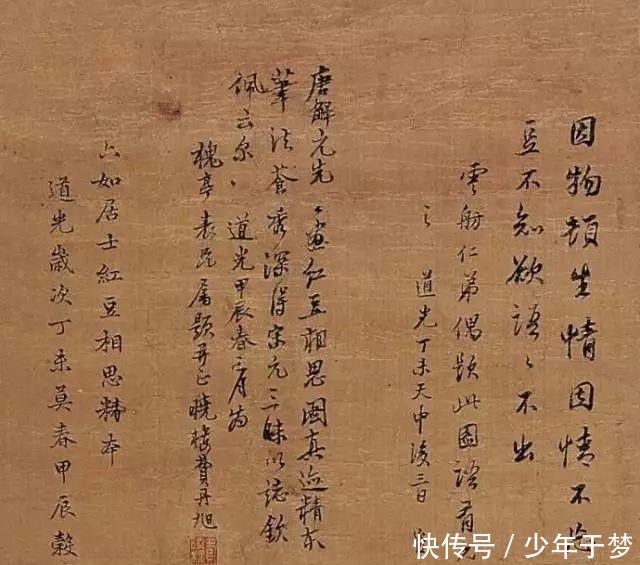 因物頓生情因情不
豆不知欲語〻不出
雲舫仁弟偶題此圖語有
道光丁未天中後三日
唐解元先〻畫紅豆相思圖真迹精本
筆法蒼秀深得宋元三昧以誌欽
佩云尔道光甲辰春二月為
槐亭表兄屬題并正曉樓費丹旭
六如居士紅豆相思精本
道光歲次丁未莫春甲辰穀
快传号 / 少年于梦